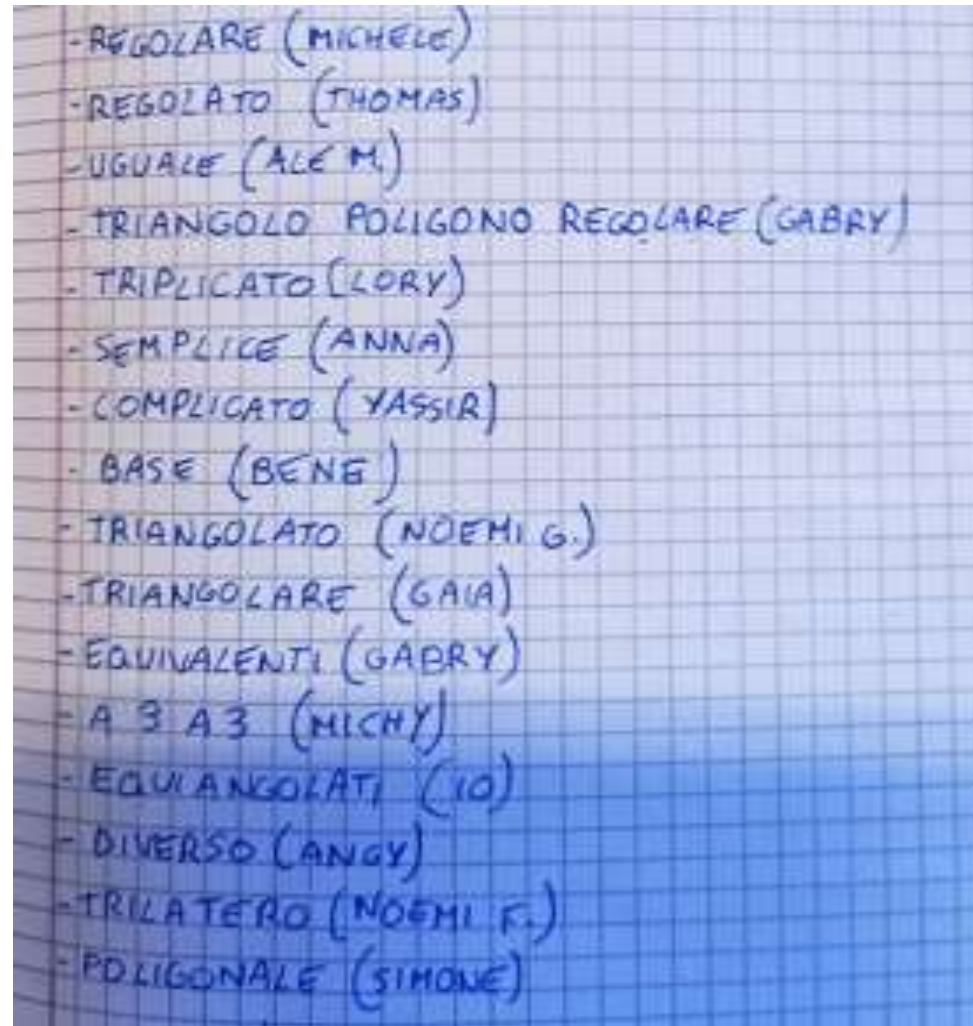 -REGOLARE (MICHELE)
-REGOLATO (THOMAS)
-UGUALE (ALE M.)
-TRIANGOLO POLIGONO REGOLARE (GABRY)
-TRIPLICATO (LORY)
-SEMPLICE (ANNA)
-COMPLICATO (YASSIR)
-BASE (BENE)
-TRIANGOLATO (NOEMI G.)
-TRIANGOLARE (GAIA)
-EQUIVALENTI (GABRY)
-A 3 A 3 (MICHY)
-EQUIANGOLATI (IO)
-DIVERSO (ANGY)
-TRILATERO (NOEMI F.)
-POLIGONALE (SIMONE)